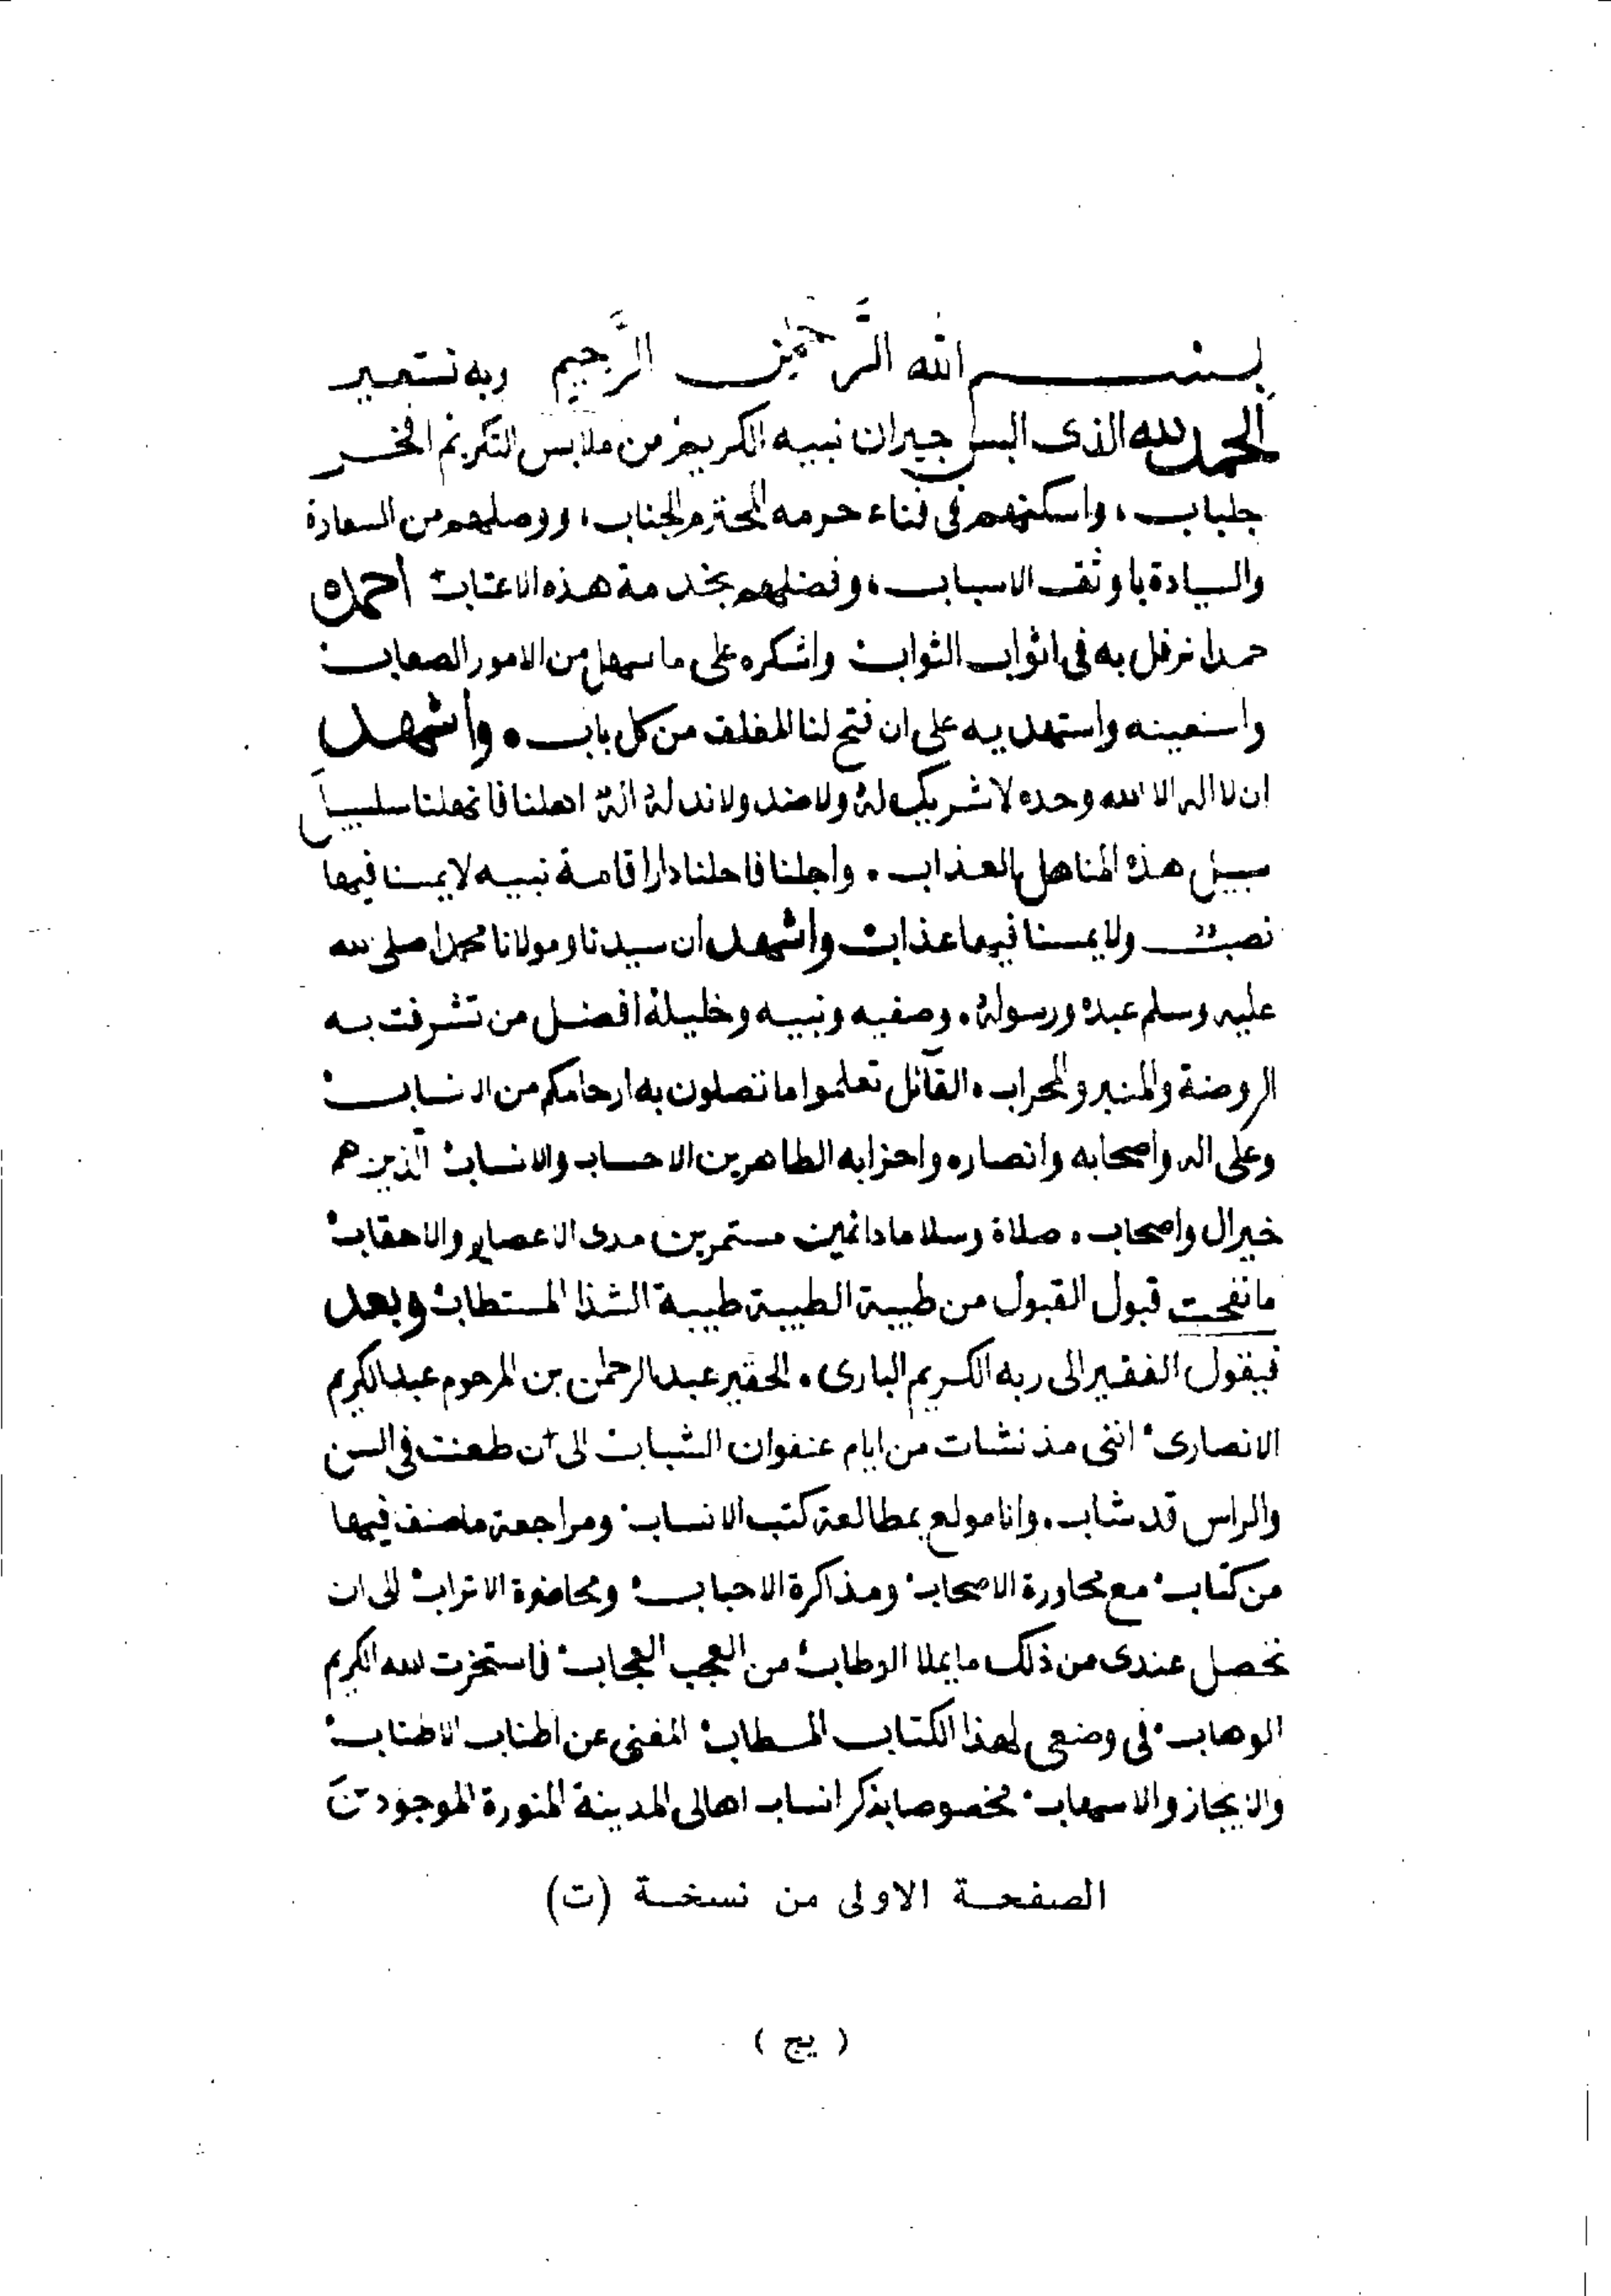 بسم الله الرَّحمٰن الرَّحيم وبه نستعين
الحمد لله الذى البس جيران نبيه الكريم من ملابس التكريم افخر
جلباب، واسكنهم فى فناء حرمه المحترم الجناب، ووصلهم من السعادة
والسيادة باوثق الاسباب، وفضلهم بخدمة هذه الاعتاب احمده
حمدا نرفل به فى اثواب الثواب واشكره على ما سهل من الامور الصعاب
واستعينه واستهديه على ان فتح لنا المغلق من كل باب. واشهد
ان لا اله الا الله وحده لا شريك له ولا ضد ولا ند له انه اهلنا فانهلنا سلسبيل
سبيل هذه المناهل العذاب. واجلنا فاحلنا دار اقامة نبيه لا يمسنا فيها
نصب ولا يمسنا فيها عذاب واشهد ان سيدنا ومولانا محمدا صلى الله
عليه وسلم عبده ورسوله. وصفيه ونبيه وخليله افضل من تشرفت به
الروضة والمنبر والمحراب. القآئل تعلموا ما تصلون به ارحامكم من الانساب
وعلى اله واصحابه وانصاره واحزابه الطاهرين الاحساب والانساب الذين هم
خير ال واصحاب. صلاة وسلاما دائمين مستمرين مدى الاعصار والاحقاب
ما نفحت قبول القبول من طيبة الطيبة طيبة الشذا المستطاب وبعد
فيقول الفقير الى ربه الكريم البارى. الحقير عبد الرحمٰن بن المرحوم عبد الكريم
الانصارى اننى مذ نشات من ايام عنفوان الشباب الى ان طعنت فى السن
والراس قد شاب. وانا مولع بمطالعة كتب الانساب ومراجعة ما صنف فيها
من كتاب مع محاورة الاصحاب ومذاكرة الاحباب ومحاضرة الاتراب الى ان
تحصل عندى من ذلك ما يملا الوطاب من العجب العجاب فاستخرت الله الكريم
الوهاب فى وضعى لهذا الكتاب المسطاب المغنى عن اطناب الاطناب
والايجاز والاسهاب مخصوصا بذكر انساب اهالى المدينة المنورة الموجودين
الصفحة الاولى من نسخة (ت)
( يج )